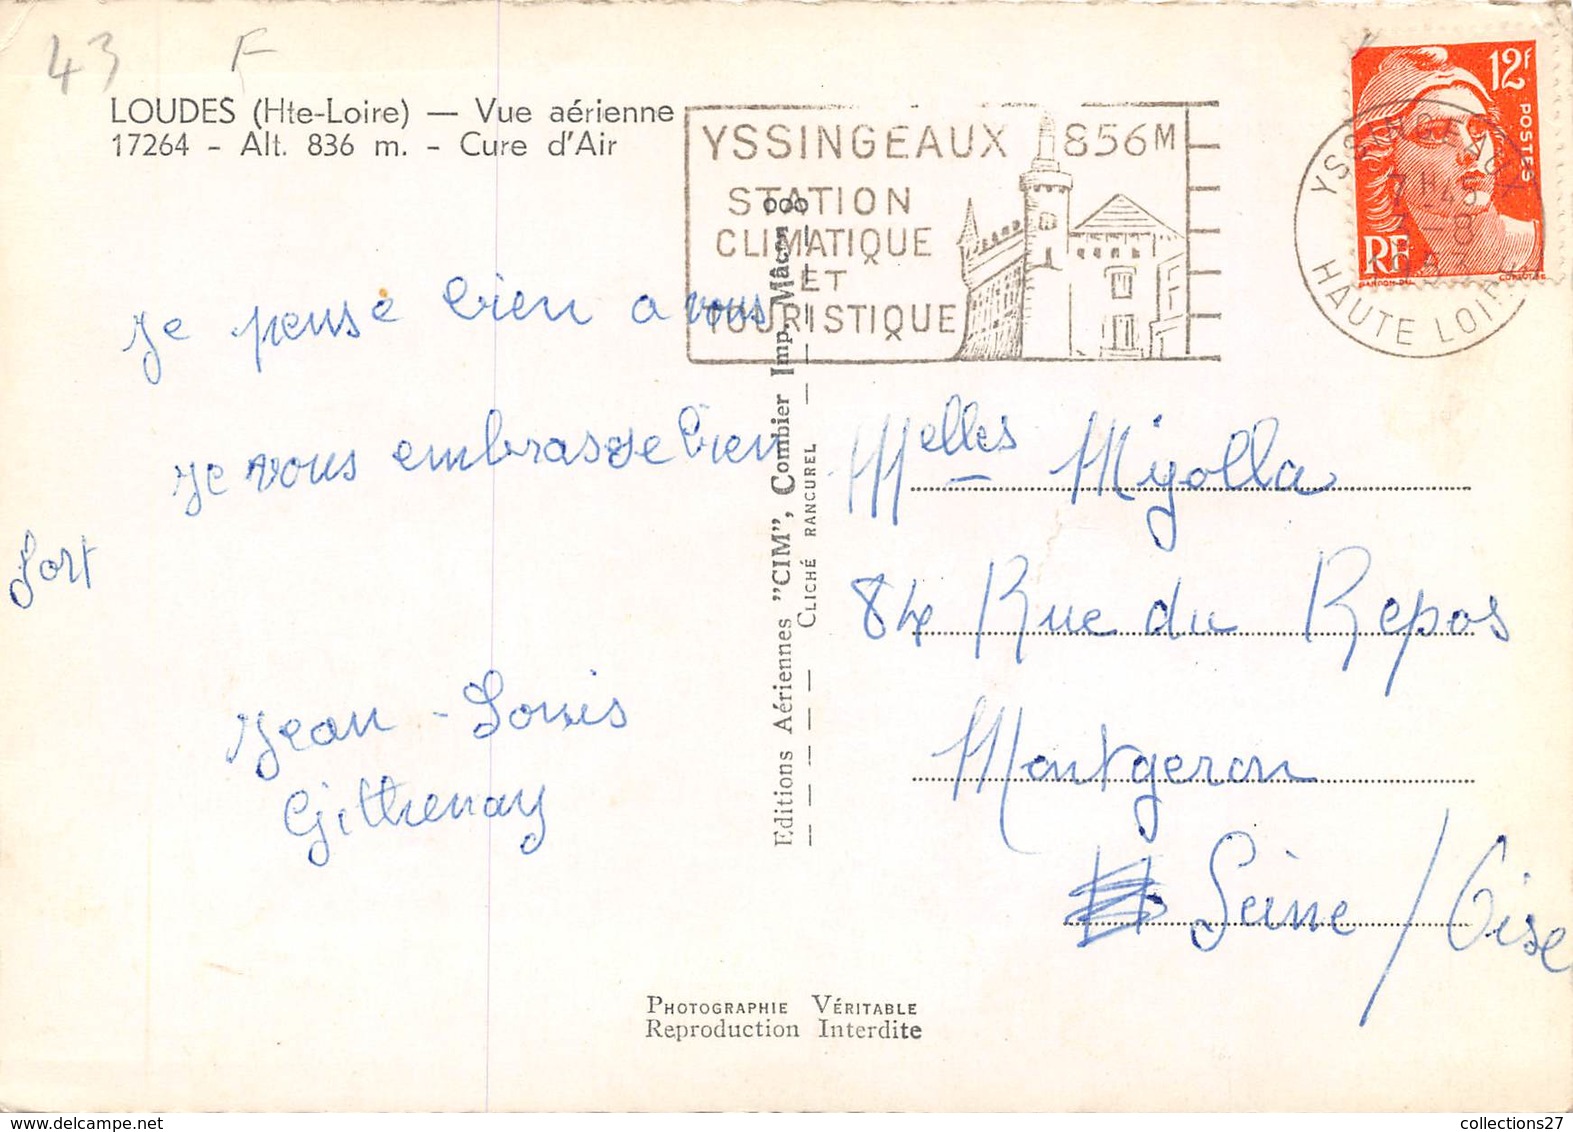 43 F
LOUDES (Hte-Loire) — Vue aérienne
17264 - Alt. 836 m. - Cure d'Air
YSSINGEAUX 856M
STATION
CLIMATIQUE
ET
TOURISTIQUE
YSSINGEAUX
7H45
7-8
HAUTE LOIRE
12F
POSTES
RF
je pense bien a vous
je vous embrasse bien
fort
Jean-Louis
Editions Aériennes "CIM", Combier Imp. Mâcon
CLICHÉ RANCUREL
Melles Migolla
84 Rue du Repos
Montgeron
Seine / Oise
PHOTOGRAPHIE VÉRITABLE
Reproduction Interdite
collections27